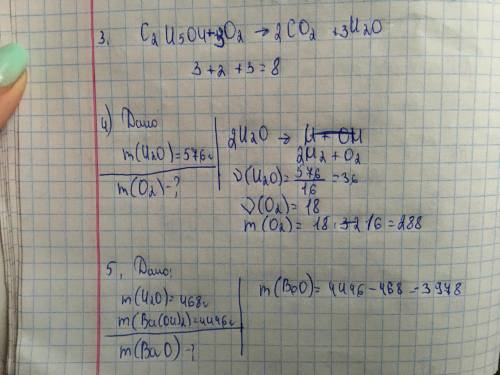 3. C₂H5OH+3O₂ → 2CO₂ + 3H₂O
3 + 2 + 3 = 8
4) Дано
m(H₂O) = 576г
m(O₂) - ?
2H₂O → H + OH
2H₂ + O₂
ν(H₂O) = 576/16 = 36
ν(O₂) = 18
m(O₂) = 18 · 32 16 = 288
5, Дано:
m(H₂O) = 468г
m(Ba(OH)₂) = 4446г
m(BaO) - ?
m(BaO) = 4446 - 468 = 3978